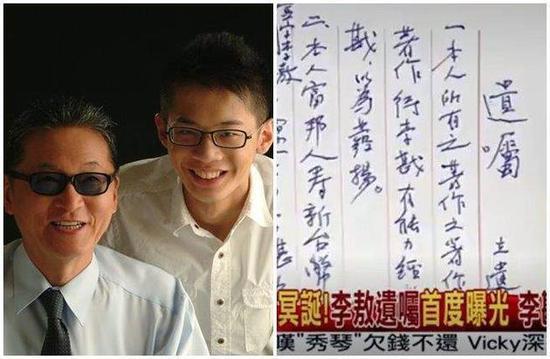 遺囑
立遺
一本人所有之著作之著作
著作待李戡有能力經
戡，以為
二本人富邦人壽新台幣
李敖
冥誕!李敖遺囑首度曝光 李
嘆"秀琴"欠錢不還 Vicky深